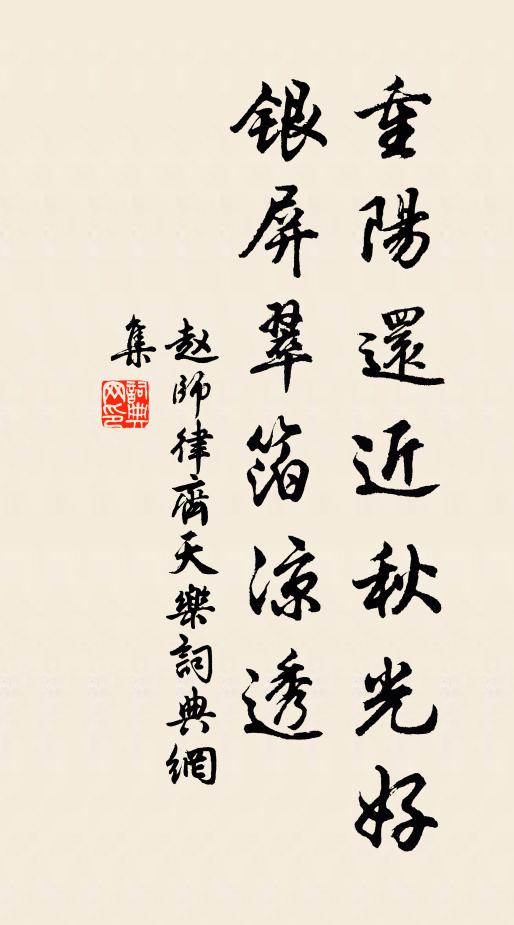 重陽還近秋光好
銀屏翠箔涼透
赵師律齊天樂詞典網
集
詞典
网印